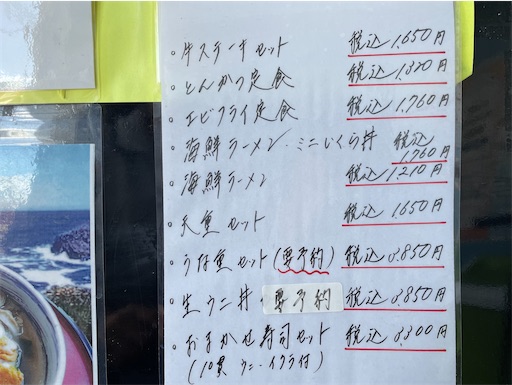 ・牛ステーキセット 税込1,650円
・とんかつ定食 税込1,320円
・エビフライ定食 税込1,760円
・海鮮ラーメン・ミニいくら丼 税込1,760円
・海鮮ラーメン 税込1,210円
・天重セット 税込1,650円
・うな重セット(要予約) 税込3,850円
・生ウニ丼・要予約 税込3,850円
・おまかせ寿司セット 税込3,300円
(10貫 ウニ・イクラ付)